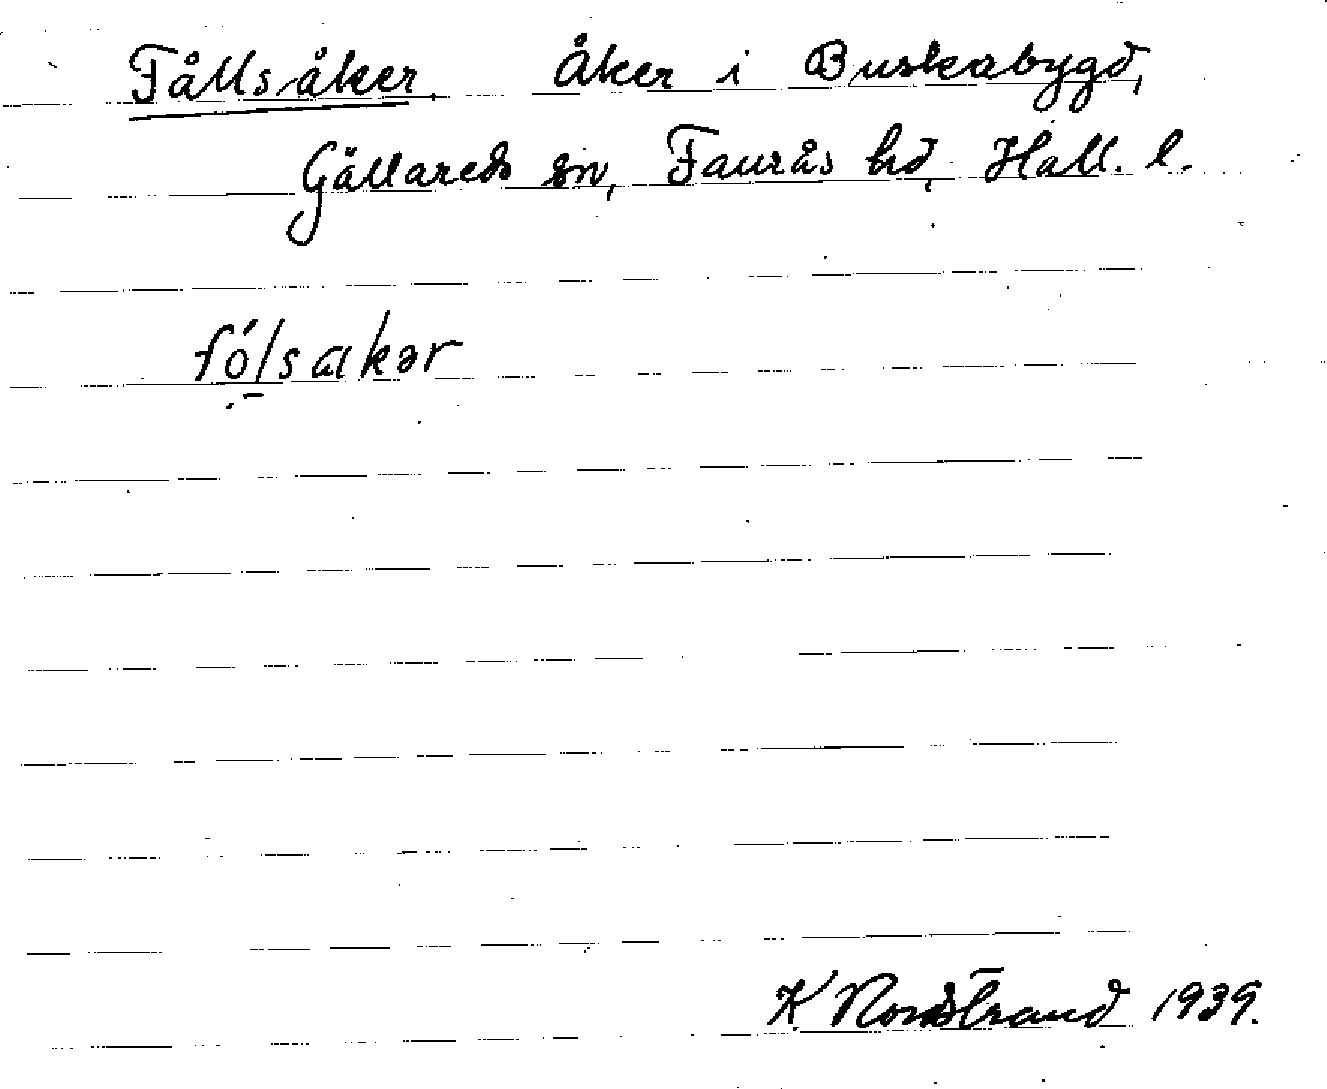 Fållsåker. Åker i Buskabygd,
Gällareds sn, Faurås hd, Hall. l.
fó̱lsakər
K Nordstrand 1939.